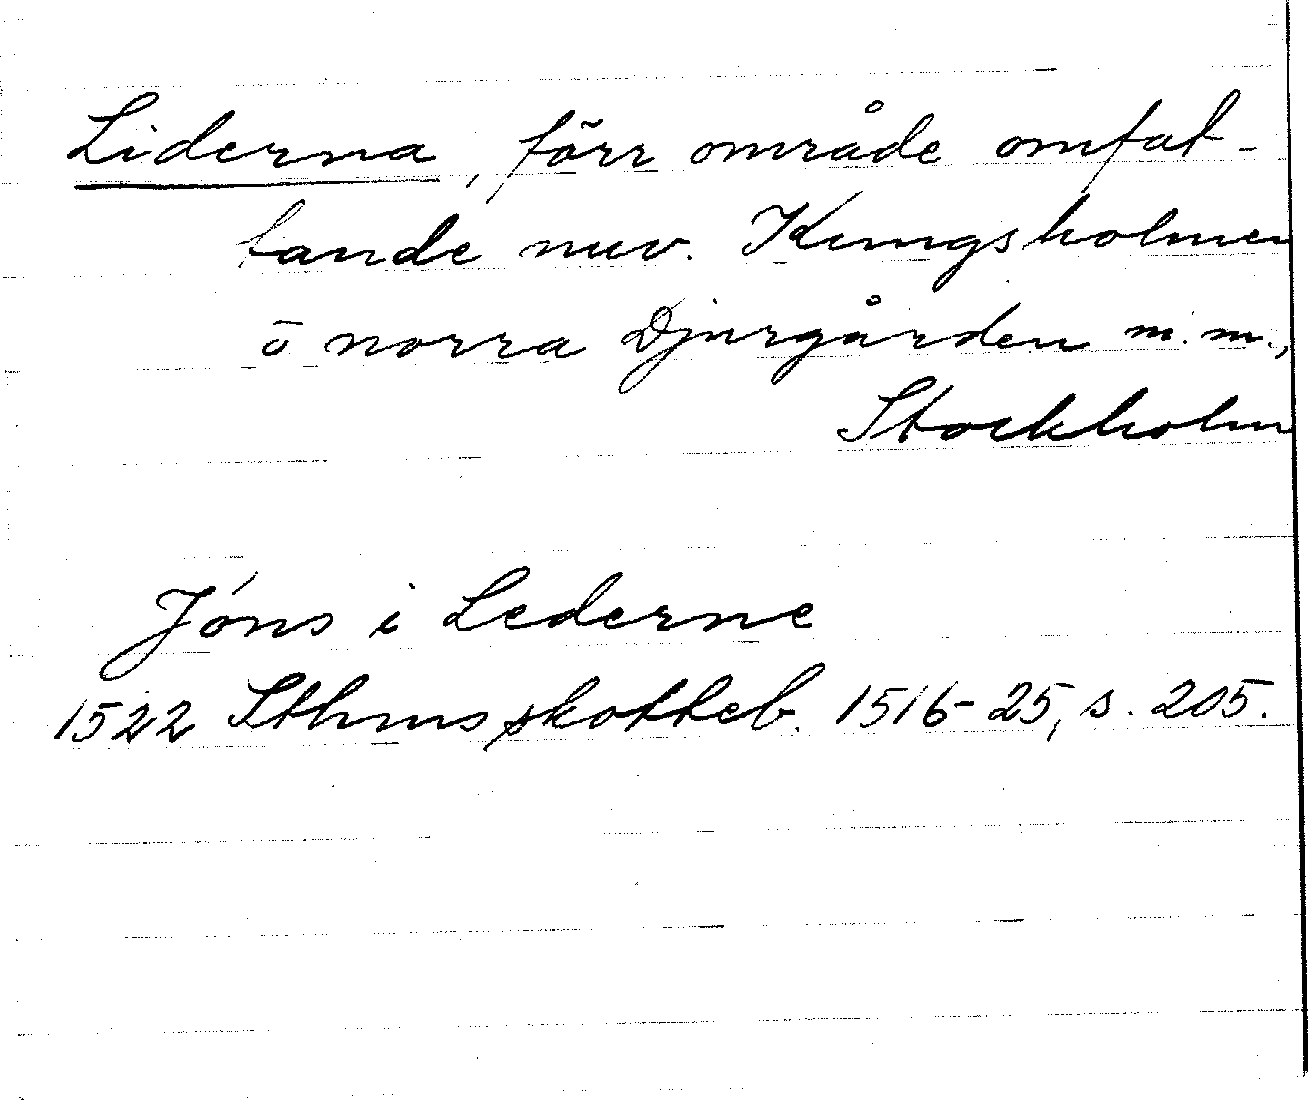 Liderna, förr område omfat-
tande nuv. Kungsholmen
o norra Djurgården m.m.,
Stockholm
Jóns i Lederne
1522 Sthms skotteb. 1516-25, s. 205.